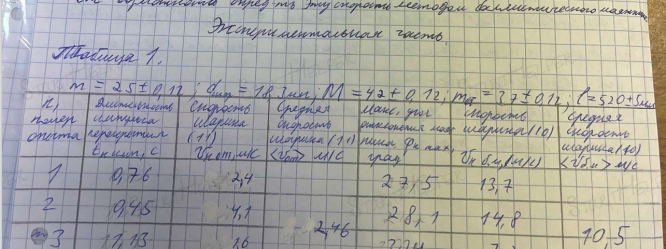 скорость методом баллистического маятника
Экспериментальная часть.
Таблица 1.
m = 25 ± 0,1г; M = 42 ± 0,1г; l = 520 ± 5мм
n, номер опыта Длительность импульса перекрытия tк имп, с Скорость шарика (11) Vк от, м/с Средняя скорость шарика (11) <Vот> м/с Макс. угол отклонения маятника φк мах, град скорость шарика (10) средняя скорость шарика (10)
1 0,76 2,4 27,5 13,7
2 0,45 4,1 28,1 14,8
2,46 10,5
3 1,13 1,6